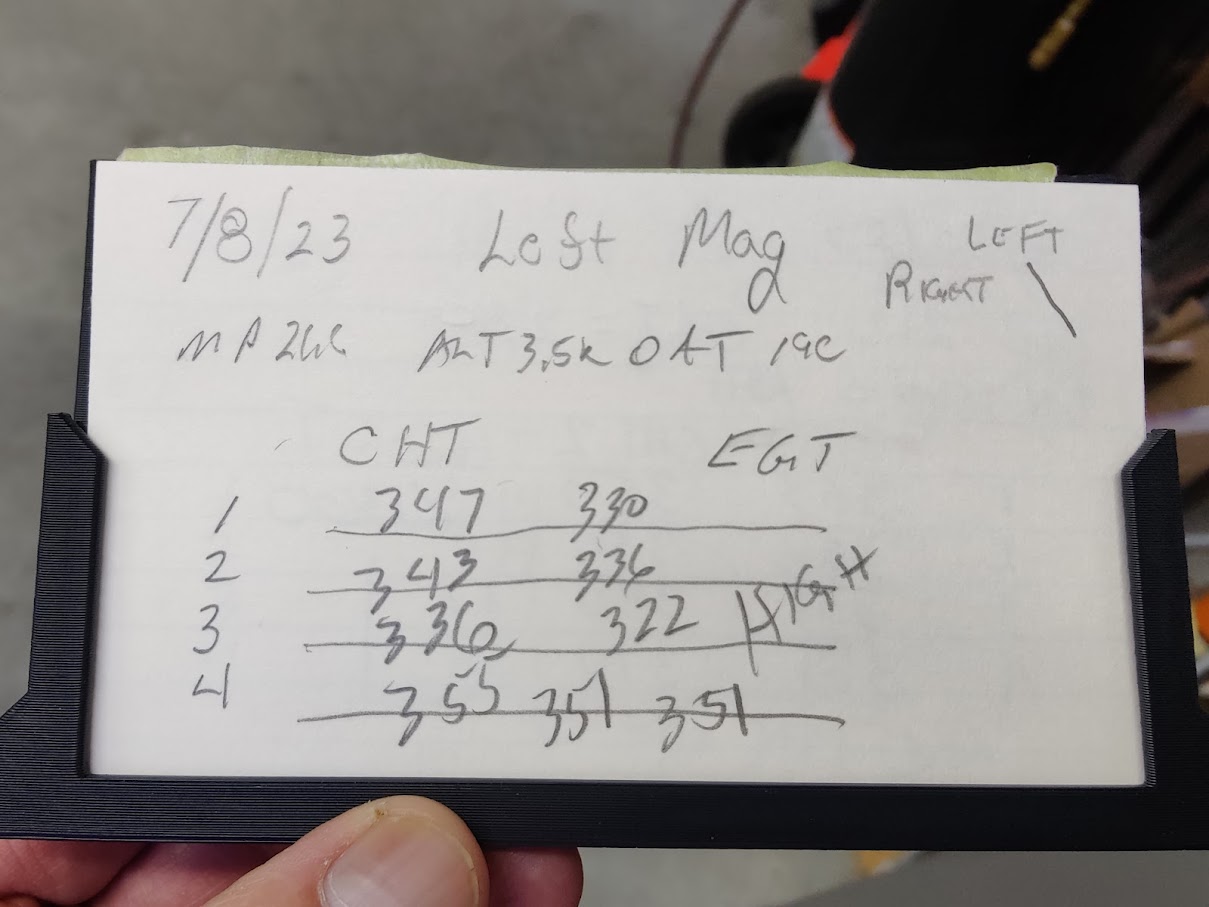 7/8/23 Left Mag LEFT
RIGHT
ALT 3.5K OAT 19C
CHT EGT
1 347 330
2 343 336
3 336 322 HIGH
4 355 351 351